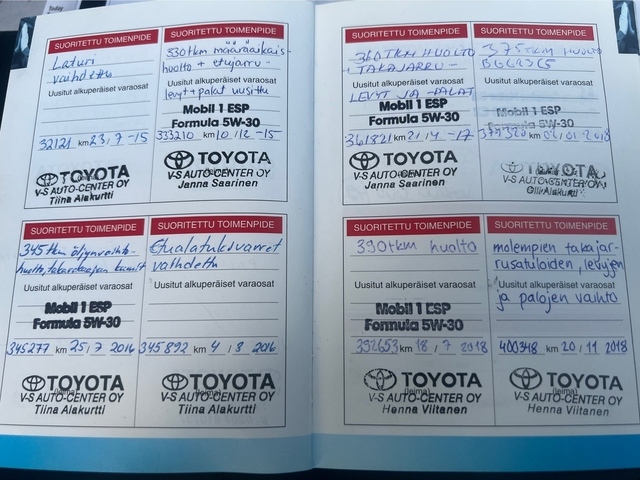 SUORITETTU TOIMENPIDE
Laturi
vaihdettu
Uusitut alkuperäiset varaosat
32121 km 23,7 -15
TOYOTA
V-S AUTO-CENTER OY
Tiina Alakurtti
SUORITETTU TOIMENPIDE
330tkm määräaikais-
huolto + etujarru-
Uusitut alkuperäiset varaosat
levyt + palat uusittu
Mobil 1 ESP
Formula 5W-30
333210 km 10/12 -15
TOYOTA
V-S AUTO-CENTER OY
Janna Saarinen
SUORITETTU TOIMENPIDE
345tkm öljynvaihto-
huolto, takaraajan kumit
Uusitut alkuperäiset varaosat
Mobil 1 ESP
Formula 5W-30
345277 km 25, 7 2016
TOYOTA
V-S AUTO-CENTER OY
Tiina Alakurtti
SUORITETTU TOIMENPIDE
Etualatukivarret
vaihdettu
Uusitut alkuperäiset varaosat
345892 km 4 / 8 2016
TOYOTA
(leima)
V-S AUTO-CENTER OY
Tiina Alakurtti
SUORITETTU TOIMENPIDE
360TKM HUOLTO
+ TAKAJARRU-
Uusitut alkuperäiset varaosat
LEVYT JA -PALAT
Mobil 1 ESP
Formula 5W-30
361821 km 21/4 -17
TOYOTA
V-S AUTO-CENTER OY
Janna Saarinen
SUORITETTU TOIMENPIDE
375tkm huolto
Uusitut alkuperäiset varaosat
Mobil 1 ESP
Formula 5W-30
km 2018
TOYOTA
V-S AUTO-CENTER OY
Olli Alakurtti
SUORITETTU TOIMENPIDE
390tkm huolto
Uusitut alkuperäiset varaosat
Mobil 1 ESP
Formula 5W-30
392653 km 18 / 7 2018
TOYOTA
(leima)
V-S AUTO-CENTER OY
Henna Viitanen
SUORITETTU TOIMENPIDE
molempien takajar-
rusatuloiden, levyjen
Uusitut alkuperäiset varaosat
ja palojen vaihto
400348 km 20 / 11 2018
TOYOTA
(leima)
V-S AUTO-CENTER OY
Henna Viitanen